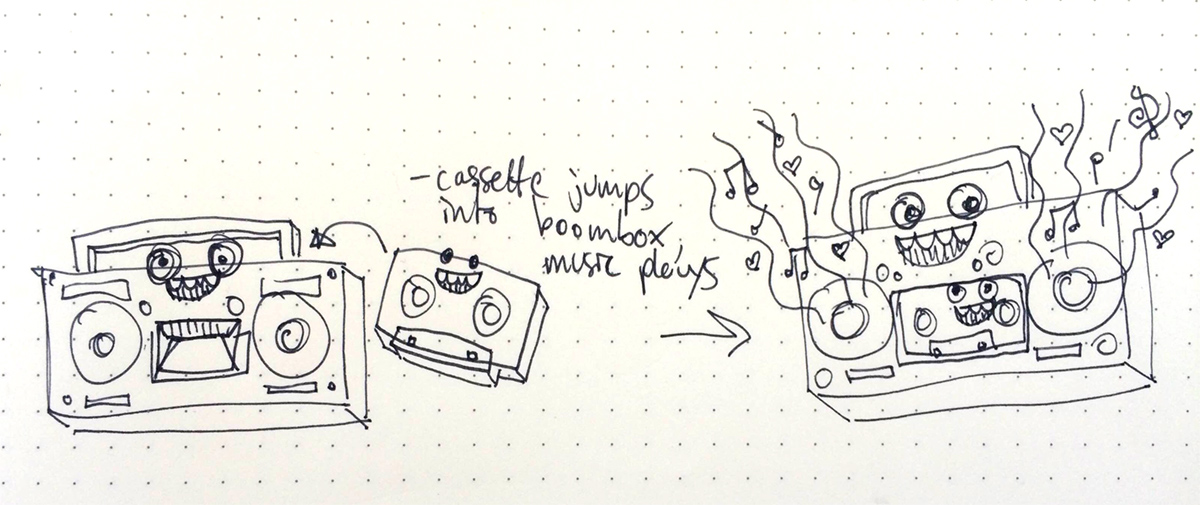 - cassette jumps
into boombox,
music plays